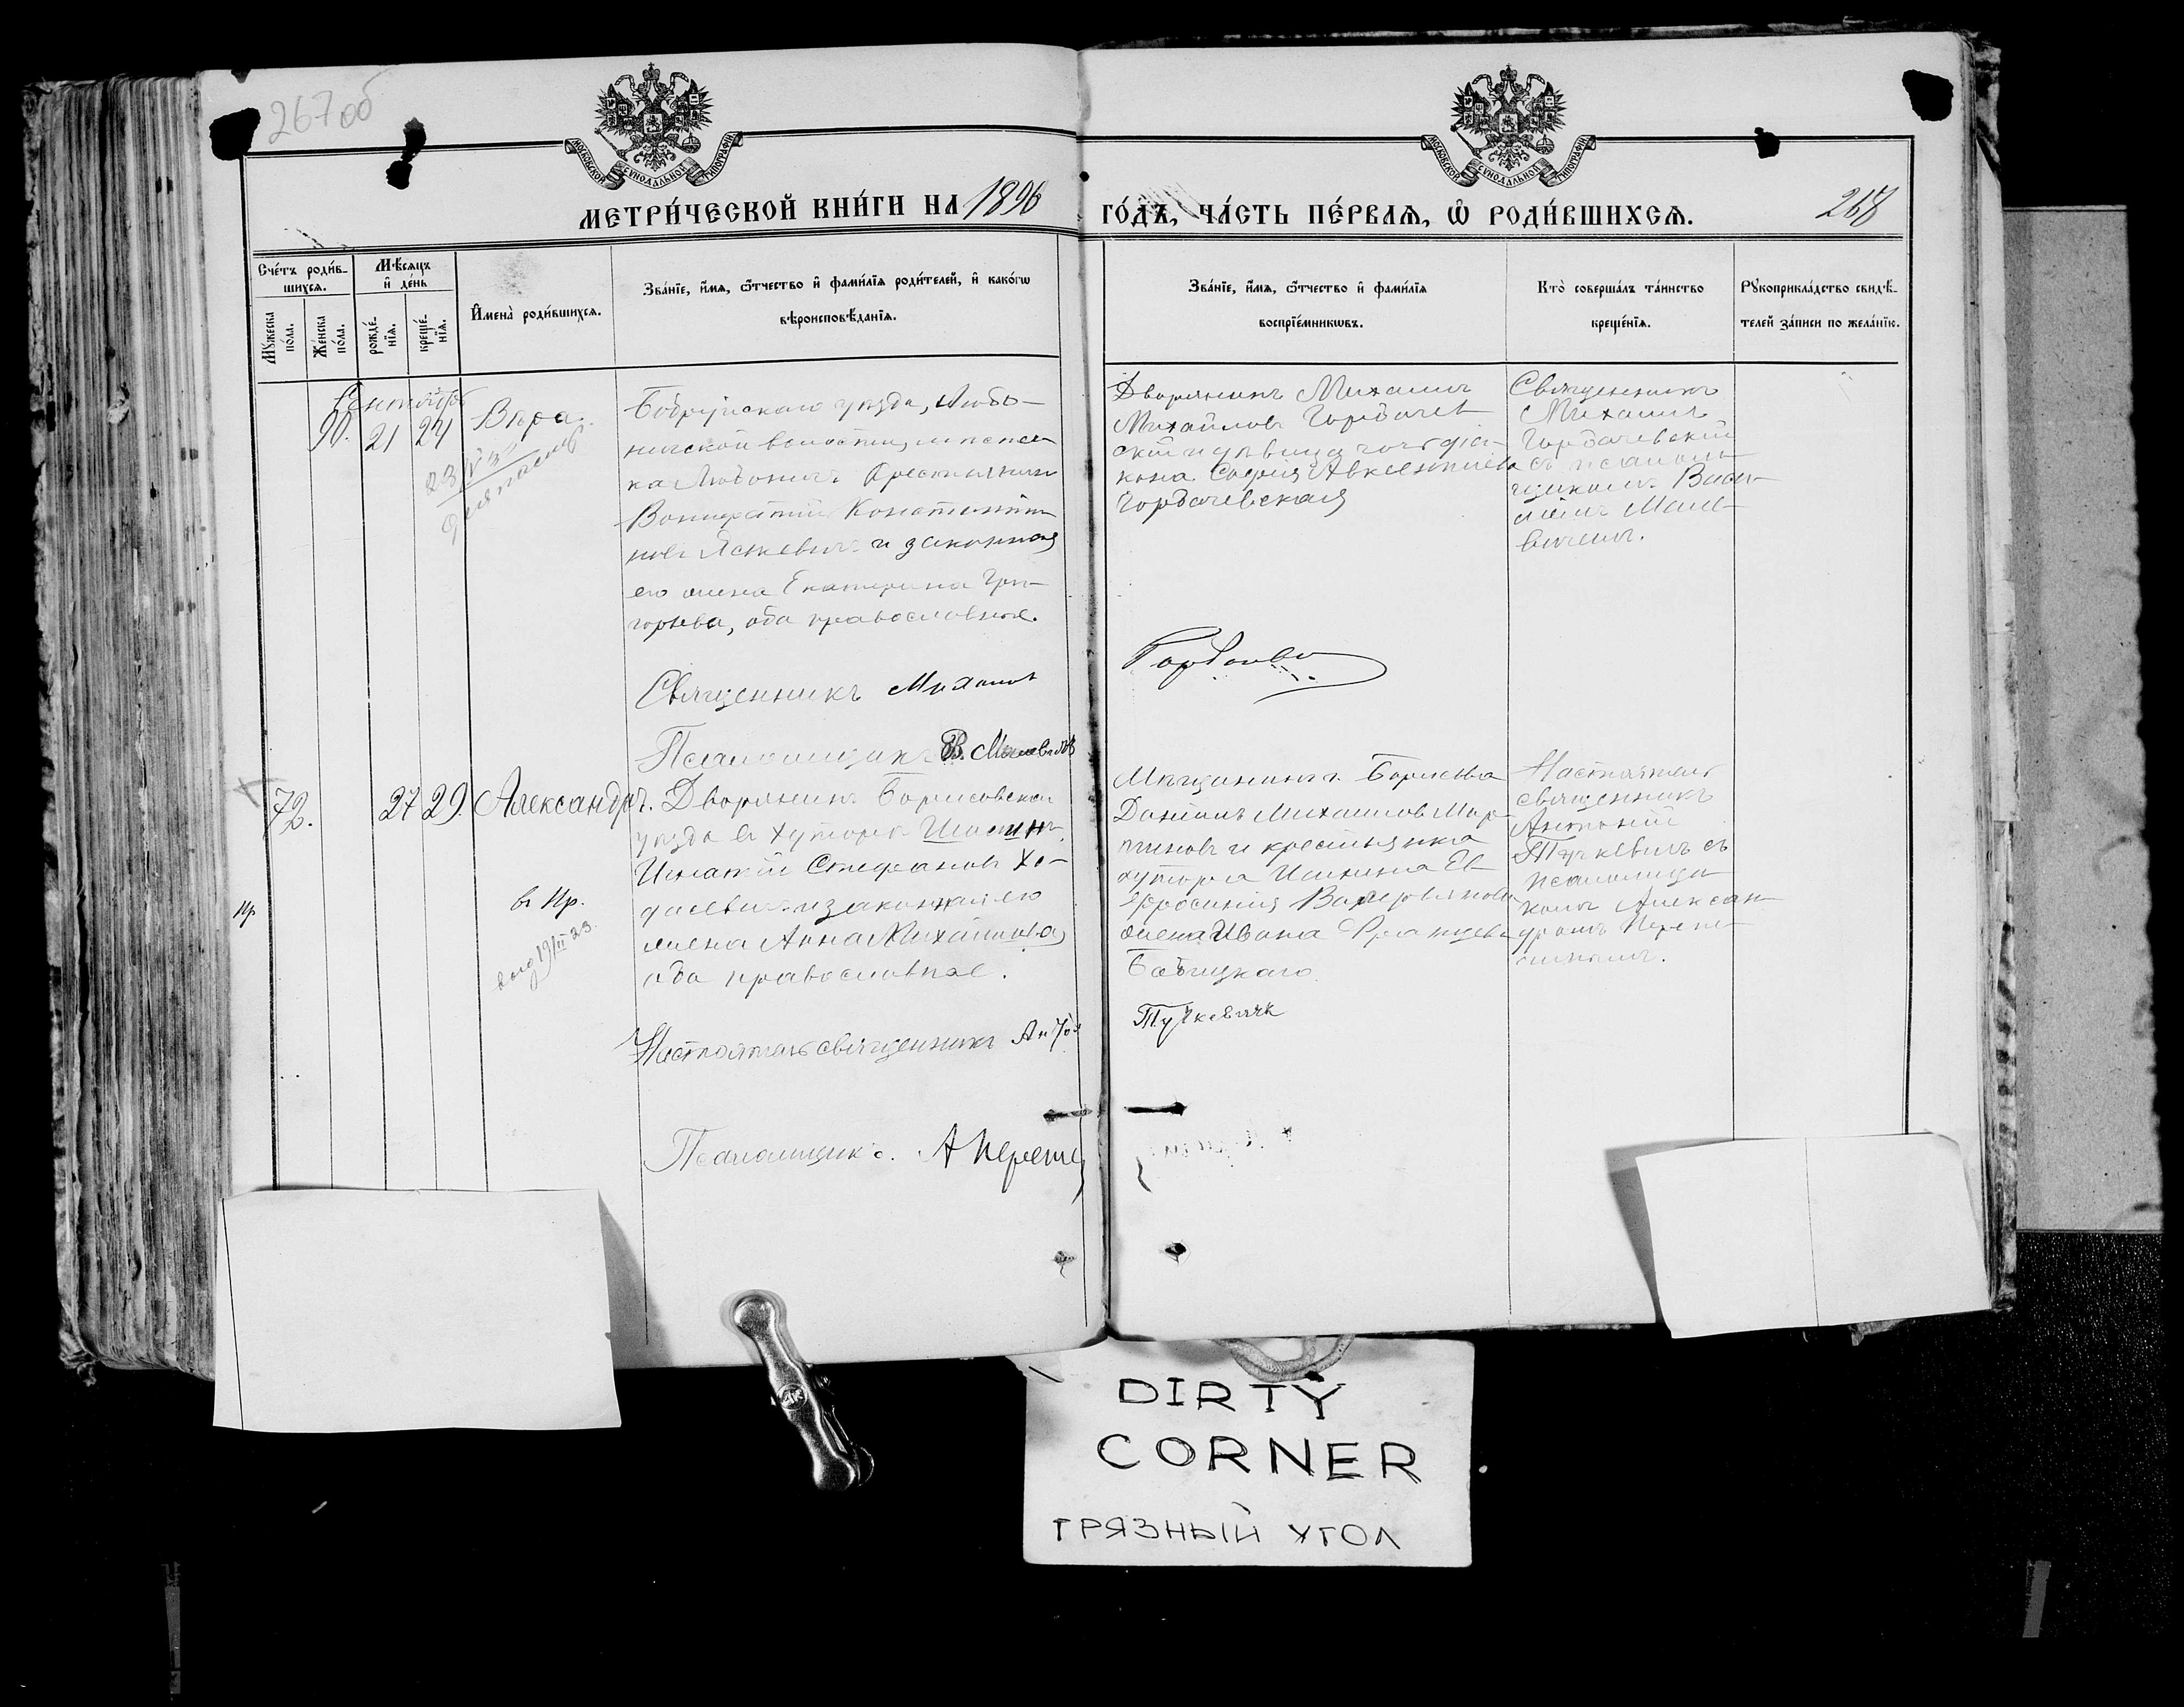 267 об
МОСКОВСКОЙ СѴНОДАЛЬНОЙ ТИПОГРАФІИ
МОСКОВСКОЙ СѴНОДАЛЬНОЙ ТИПОГРАФІИ
МЕТРИ́ЧЕСКОЙ КНИ́ГИ НА 1896 ГО́ДЪ, ЧА́СТЬ ПЕ́РВАѦ, Ѡ҆ РОДИ́ВШИХСѦ.
268
Сче́тъ роди́в-
шихсѧ.
Мꙋ́жеска по́ла.
Же́нска по́ла.
Мѣ́сѧцъ
и҆ де́нь
рожде́-
нїѧ.
креще́-
нїѧ.
И҆мена̀ роди́вшихсѧ.
Зва́нїе, и҆́мѧ, ѻ҆́тчество и҆ фами́лїѧ роди́телей, и҆ како́гѡ
вѣроисповѣ́данїѧ.
Зва́нїе, и҆́мѧ, ѻ҆́тчество и҆ фами́лїѧ
воспрїе́мникѡвъ.
Кто̀ соверша́лъ та́инство
креще́нїѧ.
Рꙋкоприкла́дство свидѣ́-
телей за́писи по жела́нїю.
Сентябрь
90. 21 24 Вѣра.
Бобруйскаго уѣзда, Любо-
ничской волости, мѣстеч-
ка Любоничъ крестьянинъ
Вонифатій Константи-
новъ Яскевичъ и законная
его жена Екатерина Гри-
горьева, оба православные.
Священникъ Михаил
Псаломщикъ В. Малевичъ
Дворянинъ Михаилъ
Михайловъ Горбачев
скій и дѣвица дочь діа-
кона Софія Авксентиева
Горбачевская
Горбачев
Священникъ
Михаилъ
Горбачевскій
съ псалом-
щикомъ Васи-
ліемъ Мале-
вичемъ.
72. 27 29. Александръ.
Дворянинъ Борисовскаго
уѣзда
Игнатій Стефановъ Хо-
и законная его
жена Анна Михайлова,
оба православные.
Настоятель священникъ Антон
Псаломщикъ. А Переп
Мѣщанинъ г. Борисова
Даніилъ Михаиловъ Мар-
тиновъ и крестьянка
хутора Ев-
фросинія
жена Ивана
Бабицкаго.
Тучкевичъ
Настоятель
священникъ
Антоній
Тучкевичъ съ
псаломщи-
комъ Алексан-
дромъ
в Пр.
Пр
DIRTY
CORNER
ГРЯЗНЫЙ УГОЛ